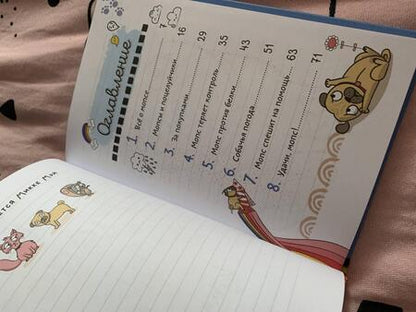 Оглавление
1. Всё о мопсе 7
2. Мопсы и поцелуйчики 16
3. За покупками 29
4. Мопс теряет контроль 35
5. Мопс против белки 43
6. Собачья погода 51
7. Мопс спешит на помощь 63
8. Удачи, мопс! 71